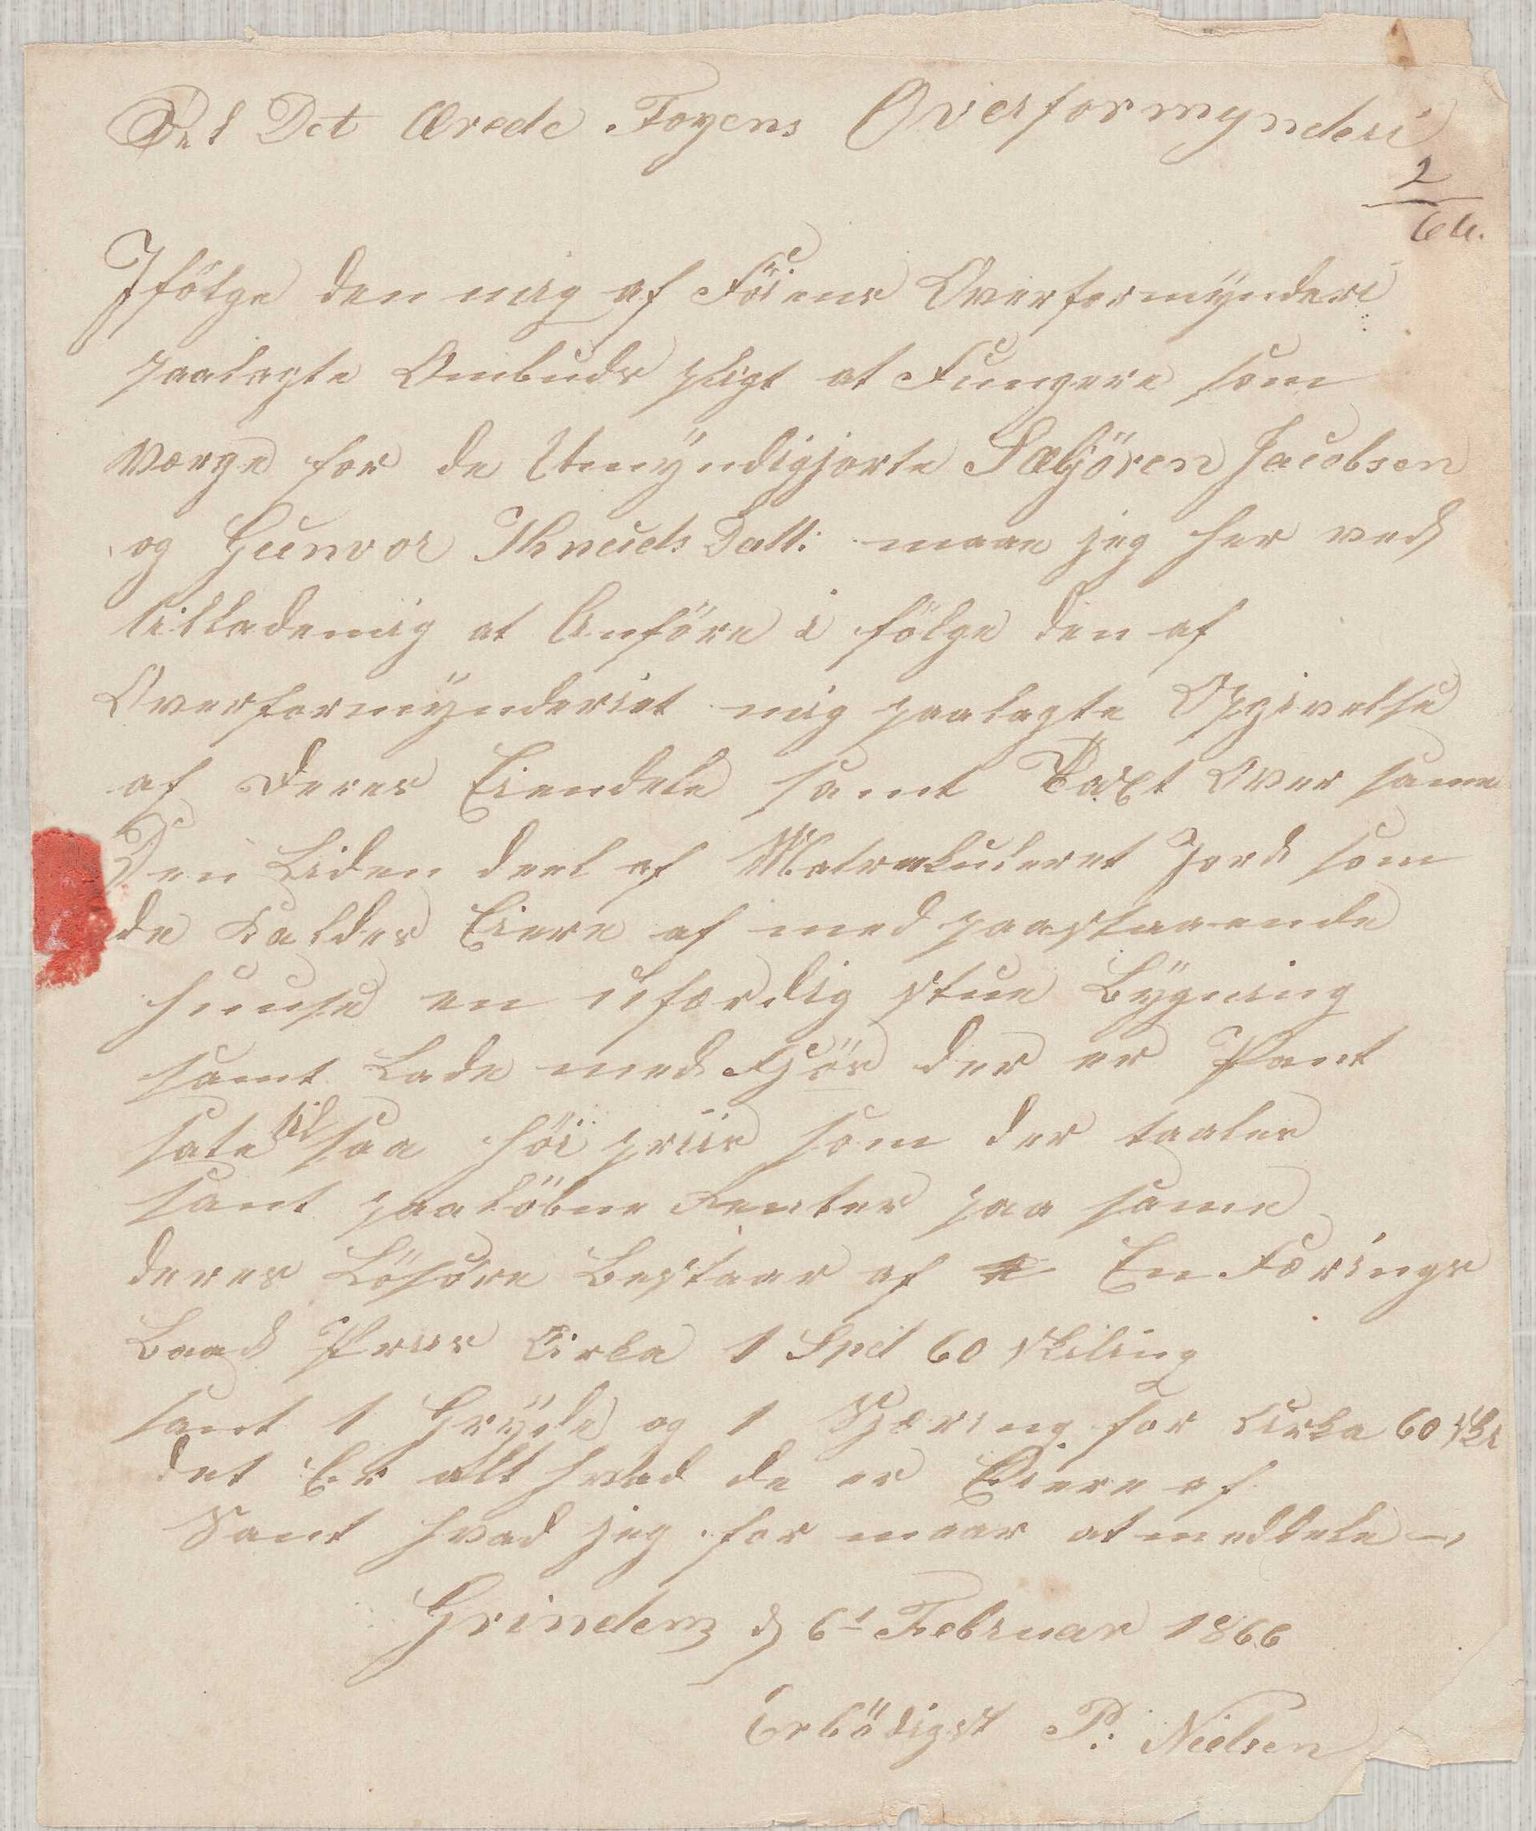 Til Det Ærede Foyens Overformynderi
2/66.
Ifölge den mig af Föiens Overformynderi
paalagte Ombuds pligt at Fungere som
værge for de Umÿndigjorte Sæbjören Jacobsen
og Gunvor Thnuds Datt: maae jeg her ved
tillademig at Anföre i fölge den af
Overformÿnderiet mig paalagte Opgivelse
af Deres Eiendele samt Taxt over same
Den Liden deel af Matrakuleret Jord som
de kaldes Eiere af med paastaaende
huuse en ufærdig stue Bÿgning
samt Lade med Fjös der er Pant
sate til saa höi priis som der taales
samt paalöbne Renter paa same
deres Lösöre Bestaar af En Færings
Baad Priis Cirka 1 Spd 60 skiling
samt 1 Grÿde og 1 for cirka 60 skl
det Er alt hvad de er Eiere af
Samt hvad jeg for maar at meddele –,
Grindem d 6t Februar 1866
Erbödigst P: Nielsen